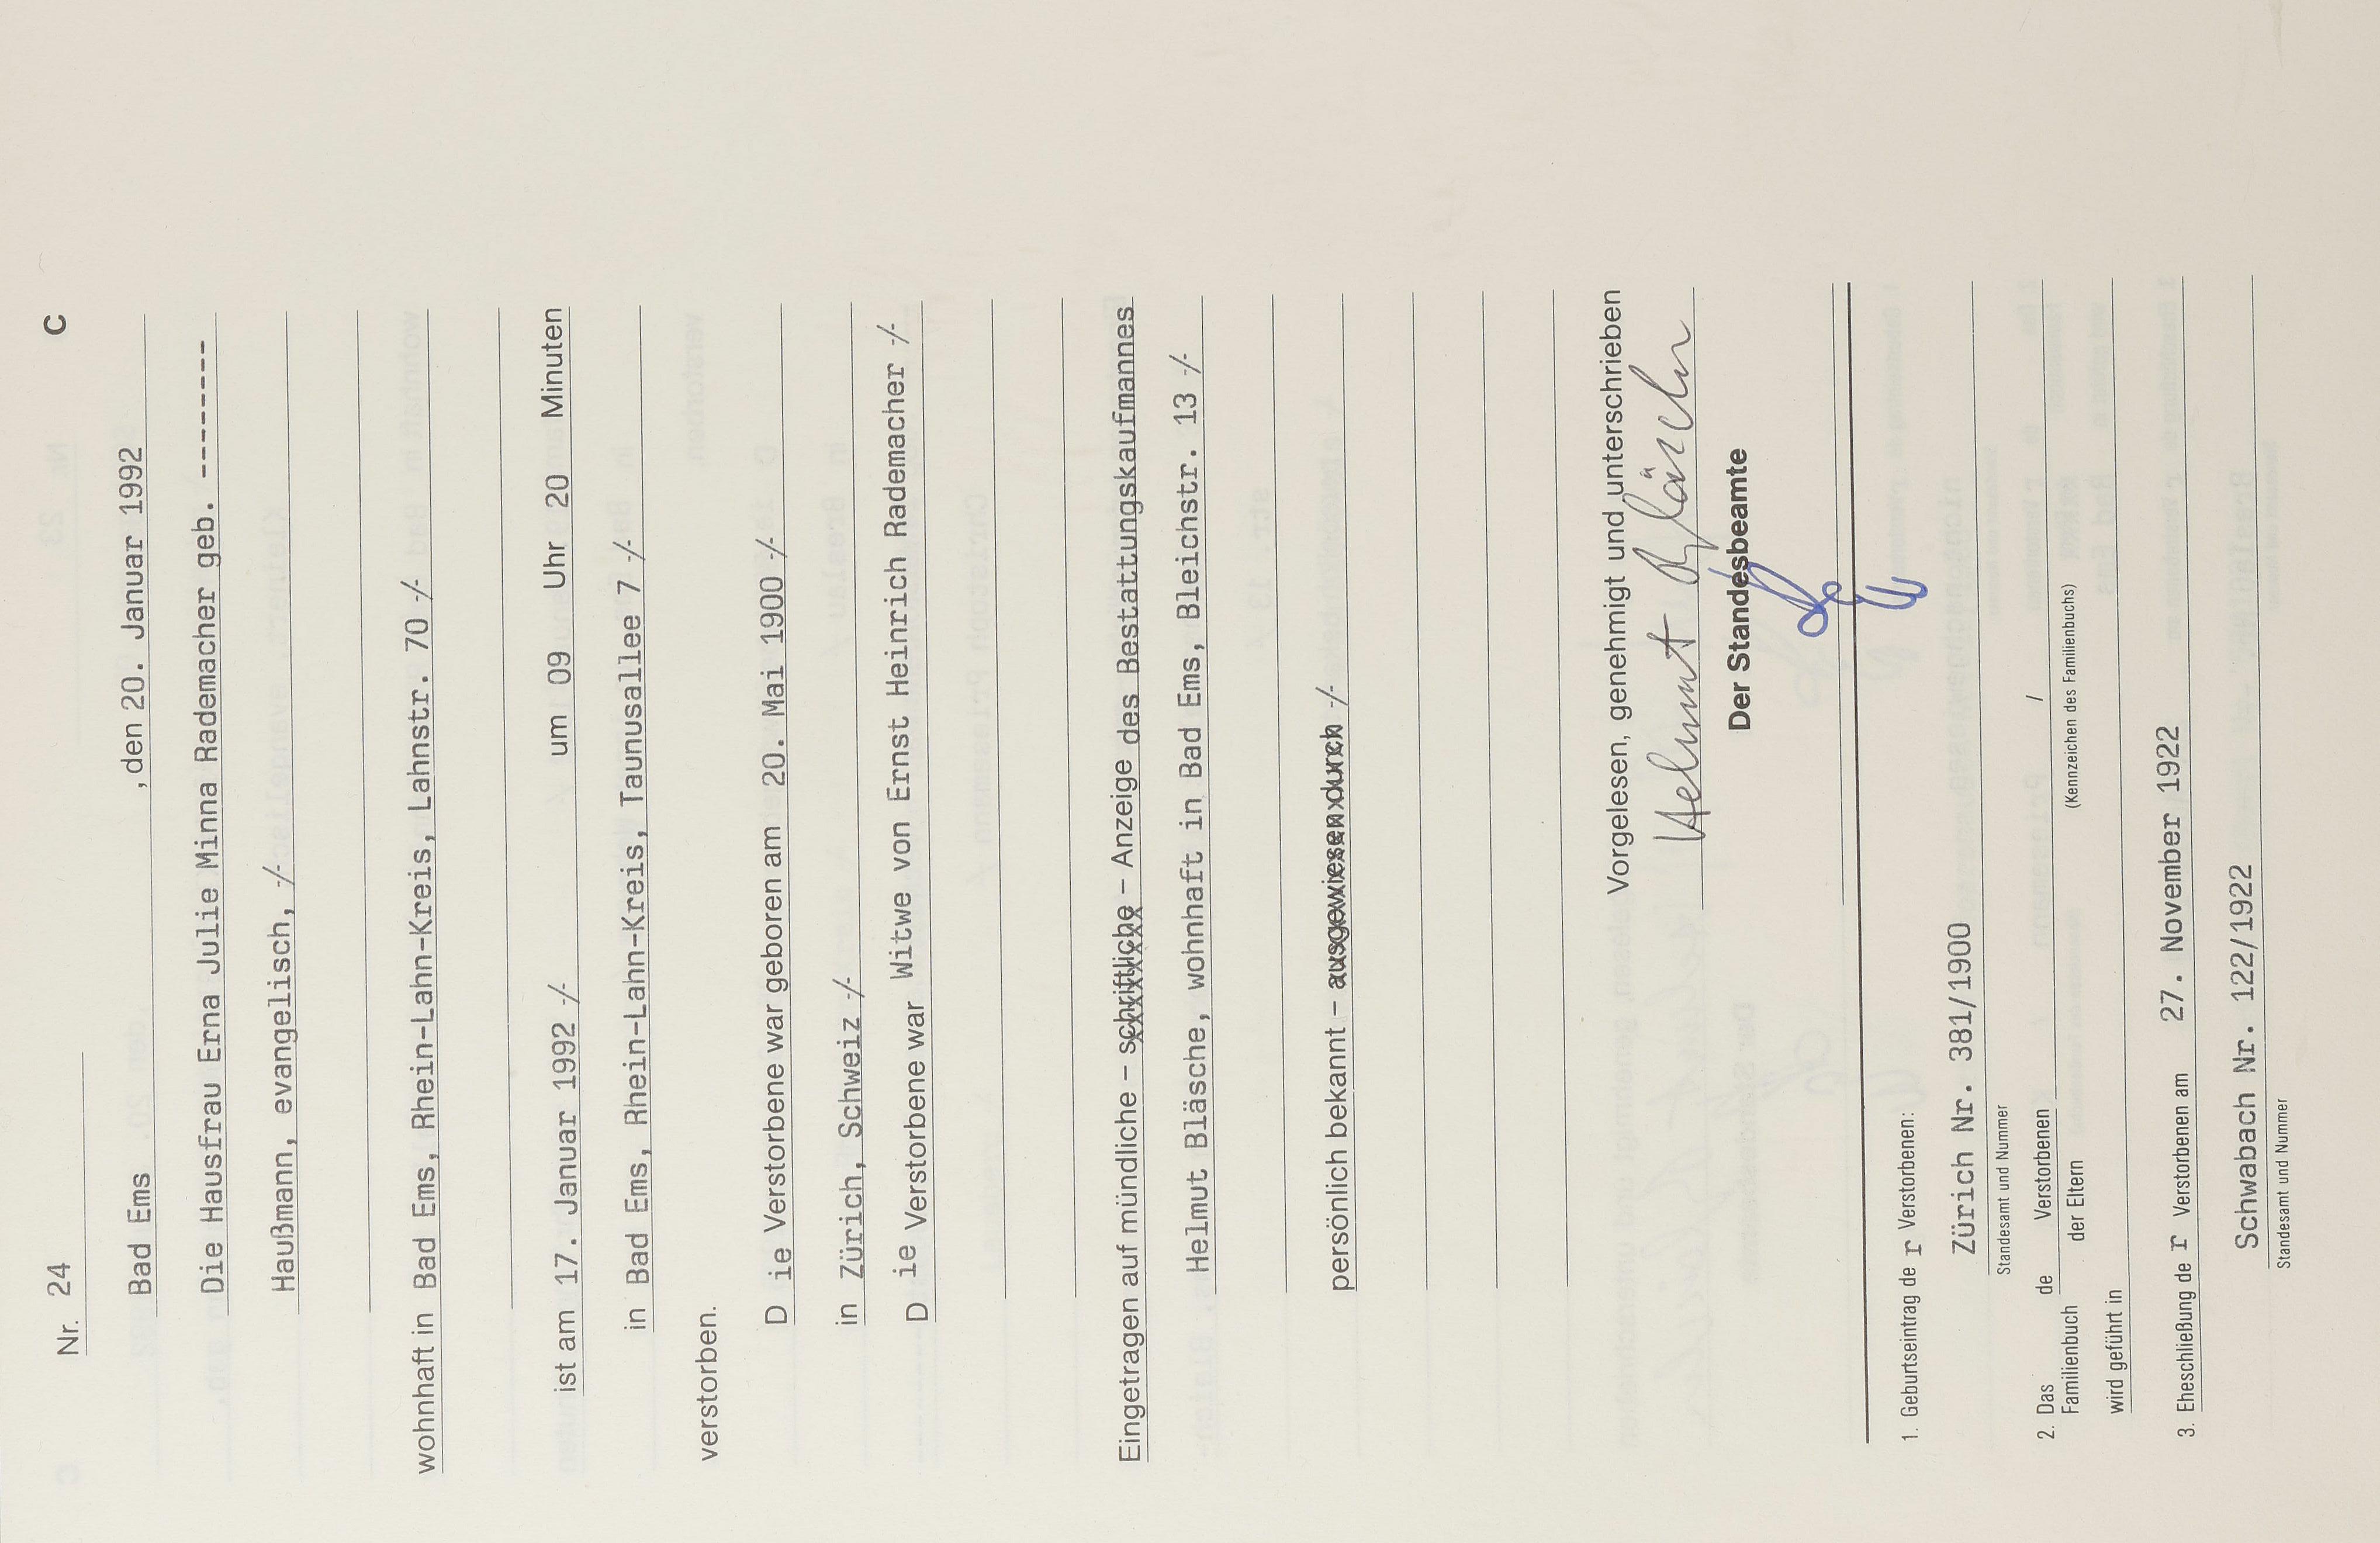 C
Nr. 24
Bad Ems , den 20. Januar 1992
Die Hausfrau Erna Julie Minna Rademacher geb. --------
Haußmann, evangelisch, -/-
wohnhaft in Bad Ems, Rhein-Lahn-Kreis, Lahnstr. 70 -/-
ist am 17. Januar 1992 -/- um 09 Uhr 20 Minuten
in Bad Ems, Rhein-Lahn-Kreis, Taunusallee 7 -/-
verstorben.
D ie Verstorbene war geboren am 20. Mai 1900 -/-
in Zürich, Schweiz -/-
D ie Verstorbene war Witwe von Ernst Heinrich Rademacher -/-
Eingetragen auf mündliche – schriftliche – Anzeige des Bestattungskaufmannes
Helmut Bläsche, wohnhaft in Bad Ems, Bleichstr. 13 -/-
persönlich bekannt – ausgewiesen durch -/-
Vorgelesen, genehmigt und unterschrieben
Helmut Bläsche
Der Standesbeamte
1. Geburtseintrag de r Verstorbenen:
Zürich Nr. 381/1900
Standesamt und Nummer
2. Das Familienbuch de Verstorbenen /
der Eltern (Kennzeichen des Familienbuchs)
wird geführt in
3. Eheschließung de r Verstorbenen am 27. November 1922
Schwabach Nr. 122/1922
Standesamt und Nummer